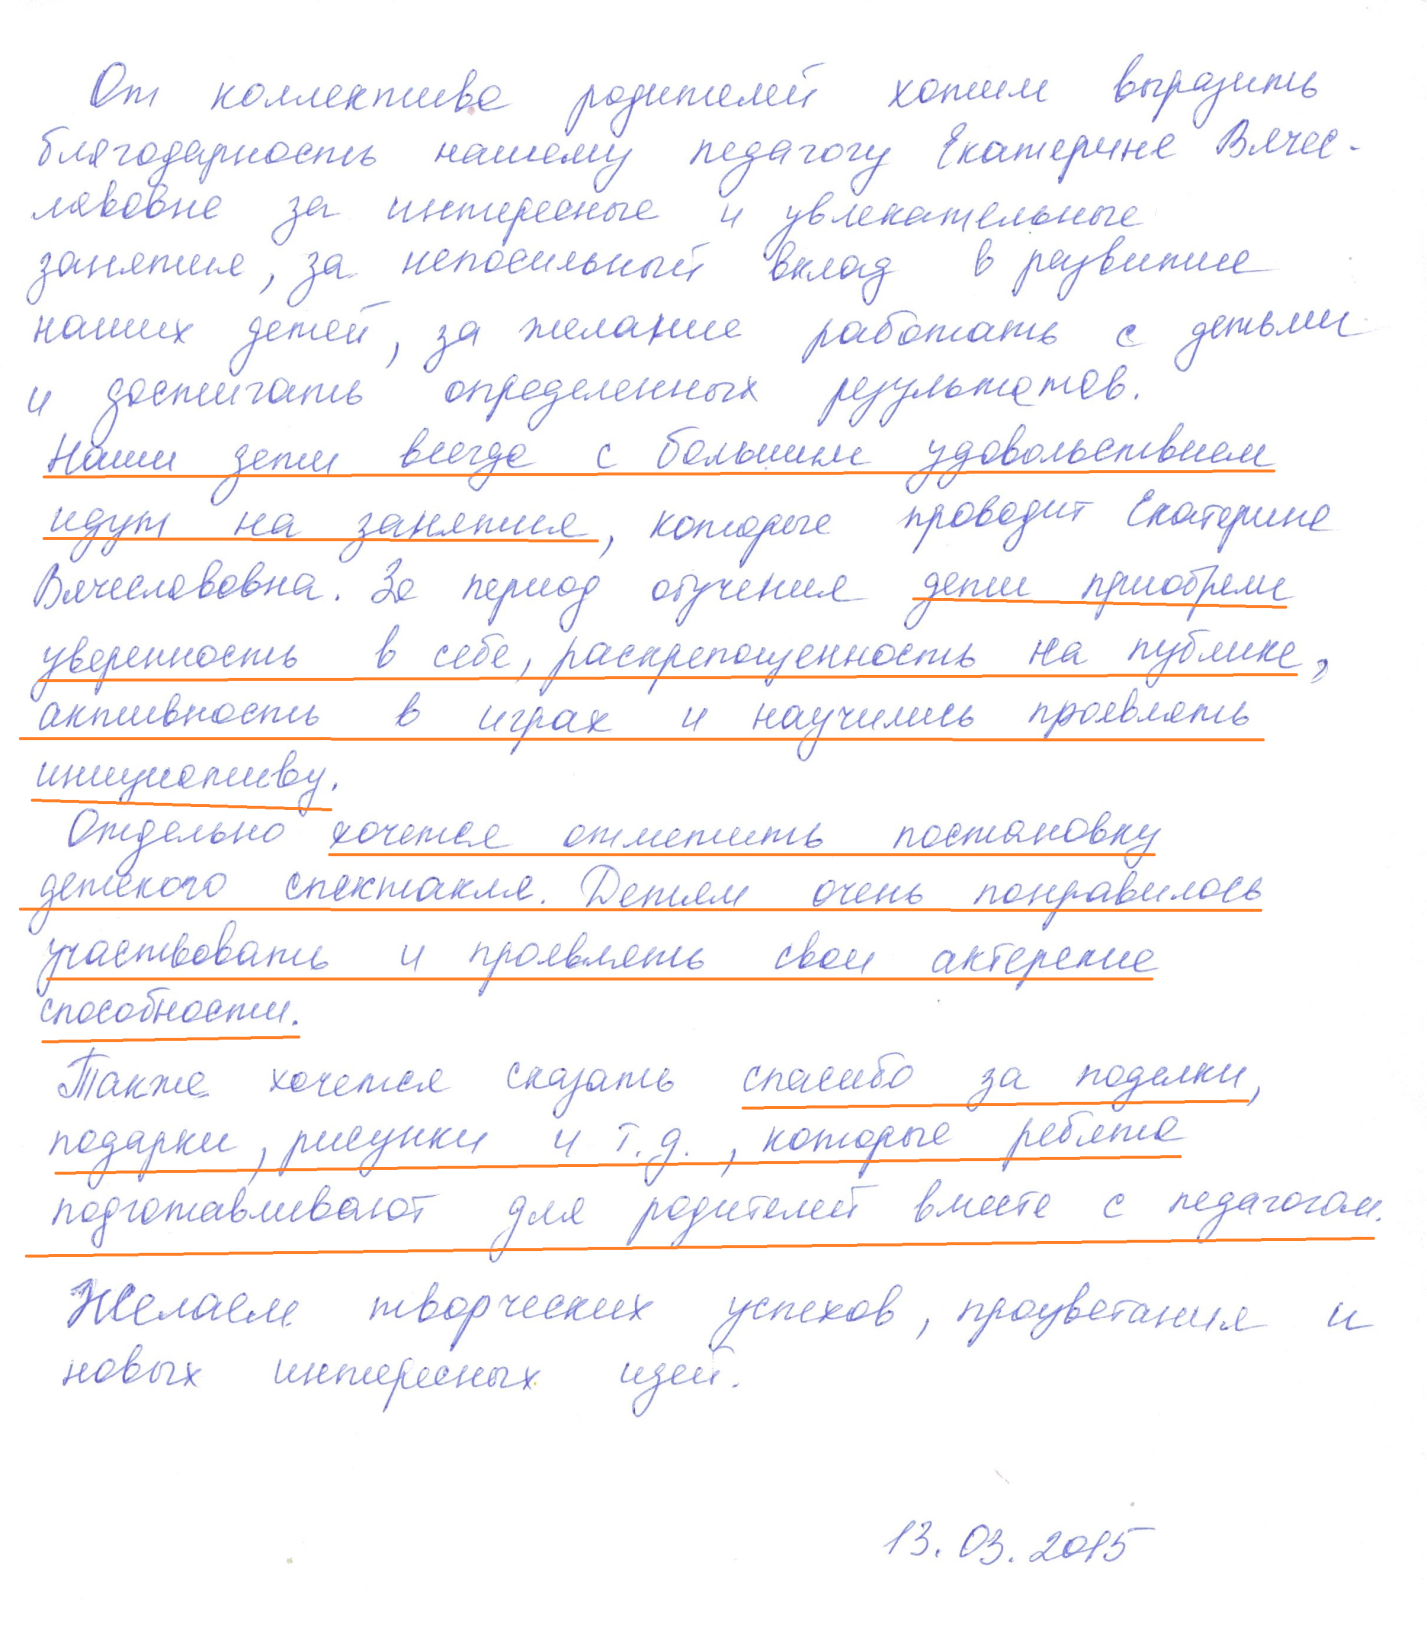 От коллектива родителей хотим выразить
благодарность нашему педагогу Екатерине Вячес-
лавовне за интересные и увлекательные
занятия, за непосильный вклад в развитие
наших детей, за желание работать с детьми
и достигать определенных результатов.
Наши дети всегда с большим удовольствием
идут на занятия, которые проводит Екатерина
Вячеславовна. За период обучения дети приобрели
уверенность в себе, раскрепощенность на публике,
активность в играх и научились проявлять
инициативу.
Отдельно хочется отметить постановку
детского спектакля. Детям очень понравилось
участвовать и проявлять свои актерские
способности.
Также хочется сказать спасибо за поделки,
подарки, рисунки и т.д., которые ребята
подготавливают для родителей вместе с педагогом.
Желаем творческих успехов, процветания и
новых интересных идей.
13.03.2015